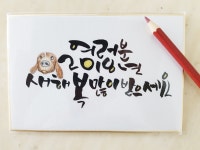 여러분
2018년
새해 복 많이 받으세요